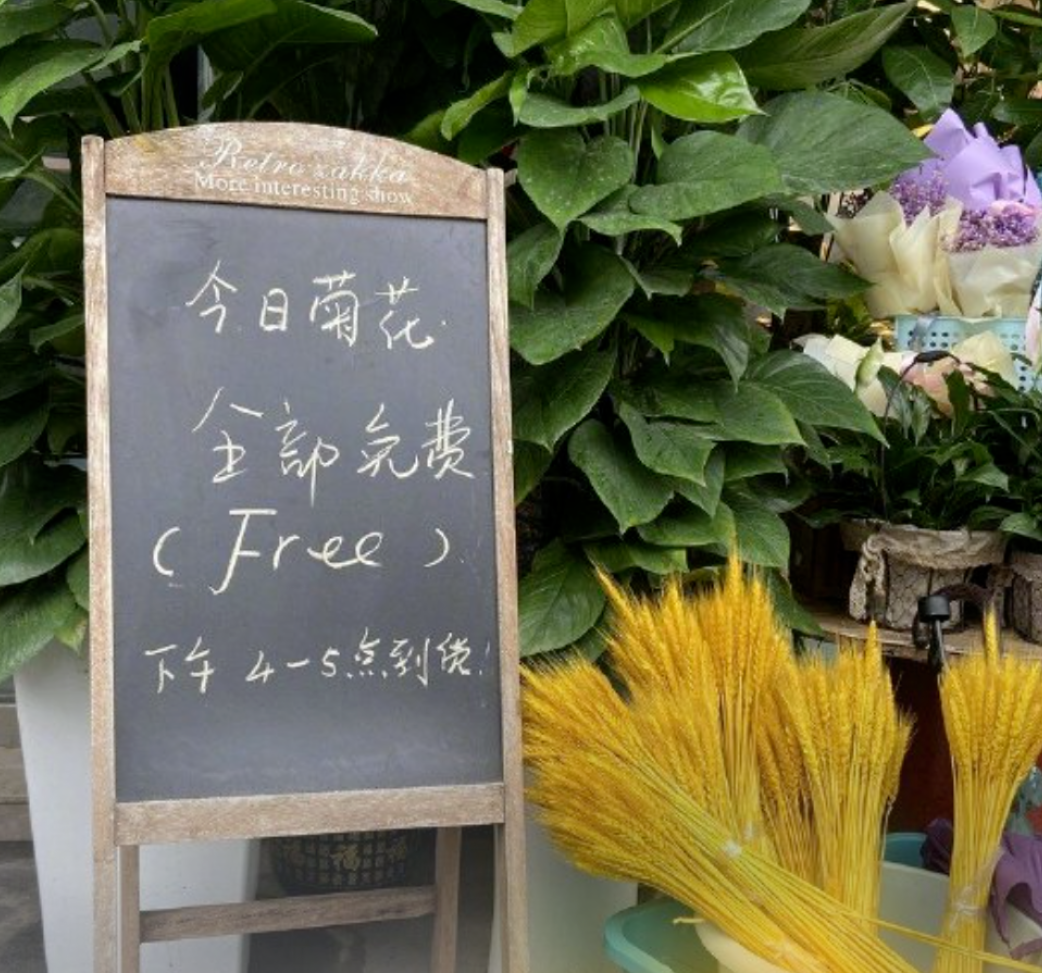 Retro zakka
More interesting show
今日菊花
全部免费
(Free)
下午 4-5点到货!
福 福